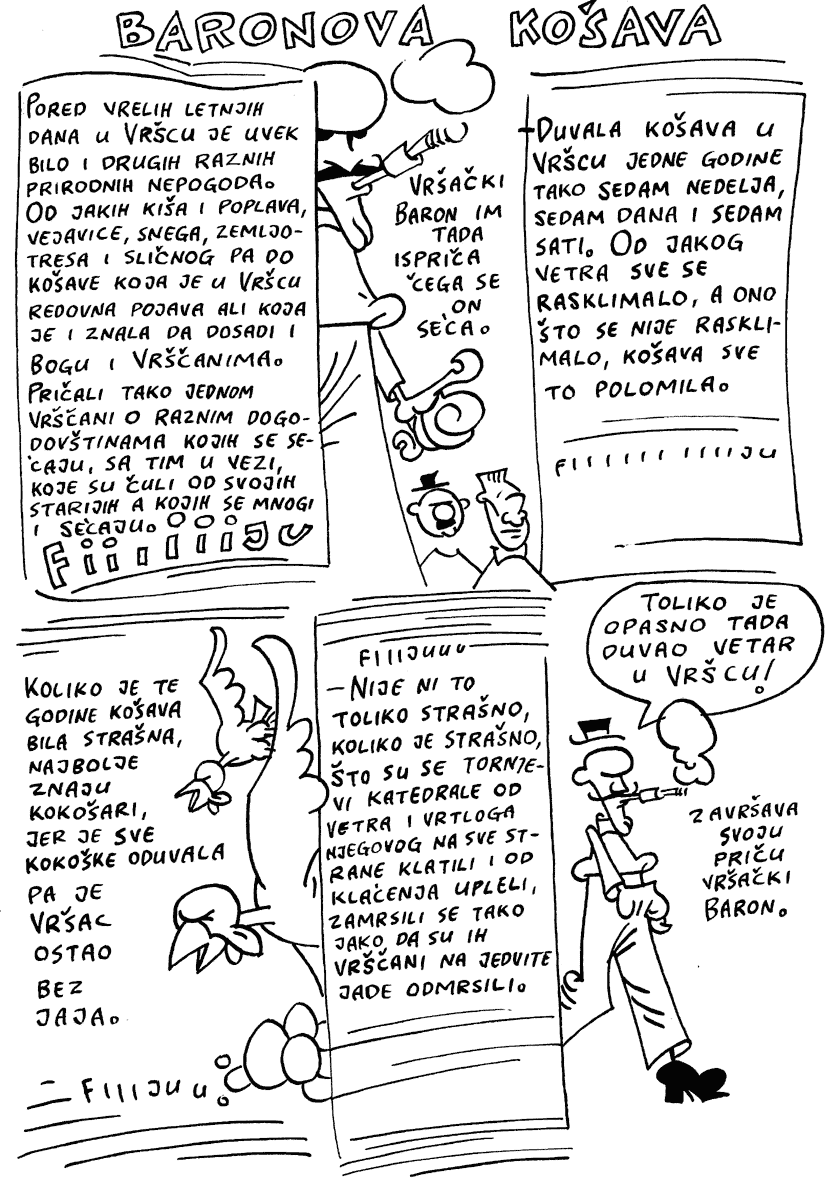 BARONOVA KOŠAVA
PORED VRELIH LETNJIH
DANA U VRŠCU JE UVEK
BILO I DRUGIH RAZNIH
PRIRODNIH NEPOGODA.
OD JAKIH KIŠA I POPLAVA,
VEJAVICE, SNEGA, ZEMLJO-
TRESA I SLIČNOG PA DO
KOŠAVE KOJA JE U VRŠCU
REDOVNA POJAVA ALI KOJA
JE I ZNALA DA DOSADI I
BOGU I VRŠČANIMA.
PRIČALI TAKO JEDNOM
VRŠČANI O RAZNIM DOGO-
DOVŠTINAMA KOJIH SE SE-
ĆAJU, SA TIM U VEZI,
KOJE SU ČULI OD SVOJIH
STARIJIH A KOJIH SE MNOGI
I SEĆAJU.
FIIIIIIJU
VRŠAČKI
BARON IM
TADA
ISPRIČA
ČEGA SE
ON
SEĆA.
–DUVALA KOŠAVA U
VRŠCU JEDNE GODINE
TAKO SEDAM NEDELJA,
SEDAM DANA I SEDAM
SATI. OD JAKOG
VETRA SVE SE
RASKLIMALO, A ONO
ŠTO SE NIJE RASKLI-
MALO, KOŠAVA SVE
TO POLOMILA.
FIIIIII IIIIIJU
KOLIKO JE TE
GODINE KOŠAVA
BILA STRAŠNA,
NAJBOLJE
ZNAJU
KOKOŠARI,
JER JE SVE
KOKOŠKE ODUVALA
PA JE
VRŠAC
OSTAO
BEZ
JAJA.
FIIIJUU
FIIIJUUU
–NIJE NI TO
TOLIKO STRAŠNO,
KOLIKO JE STRAŠNO,
ŠTO SU SE TORNJE-
VI KATEDRALE OD
VETRA I VRTLOGA
NJEGOVOG NA SVE ST-
RANE KLATILI I OD
KLAĆENJA UPLELI,
ZAMRSILI SE TAKO
JAKO DA SU IH
VRŠČANI NA JEDVITE
JADE ODMRSILI.
TOLIKO JE
OPASNO TADA
DUVAO VETAR
U VRŠCU!
ZAVRŠAVA
SVOJU
PRIČU
VRŠAČKI
BARON.